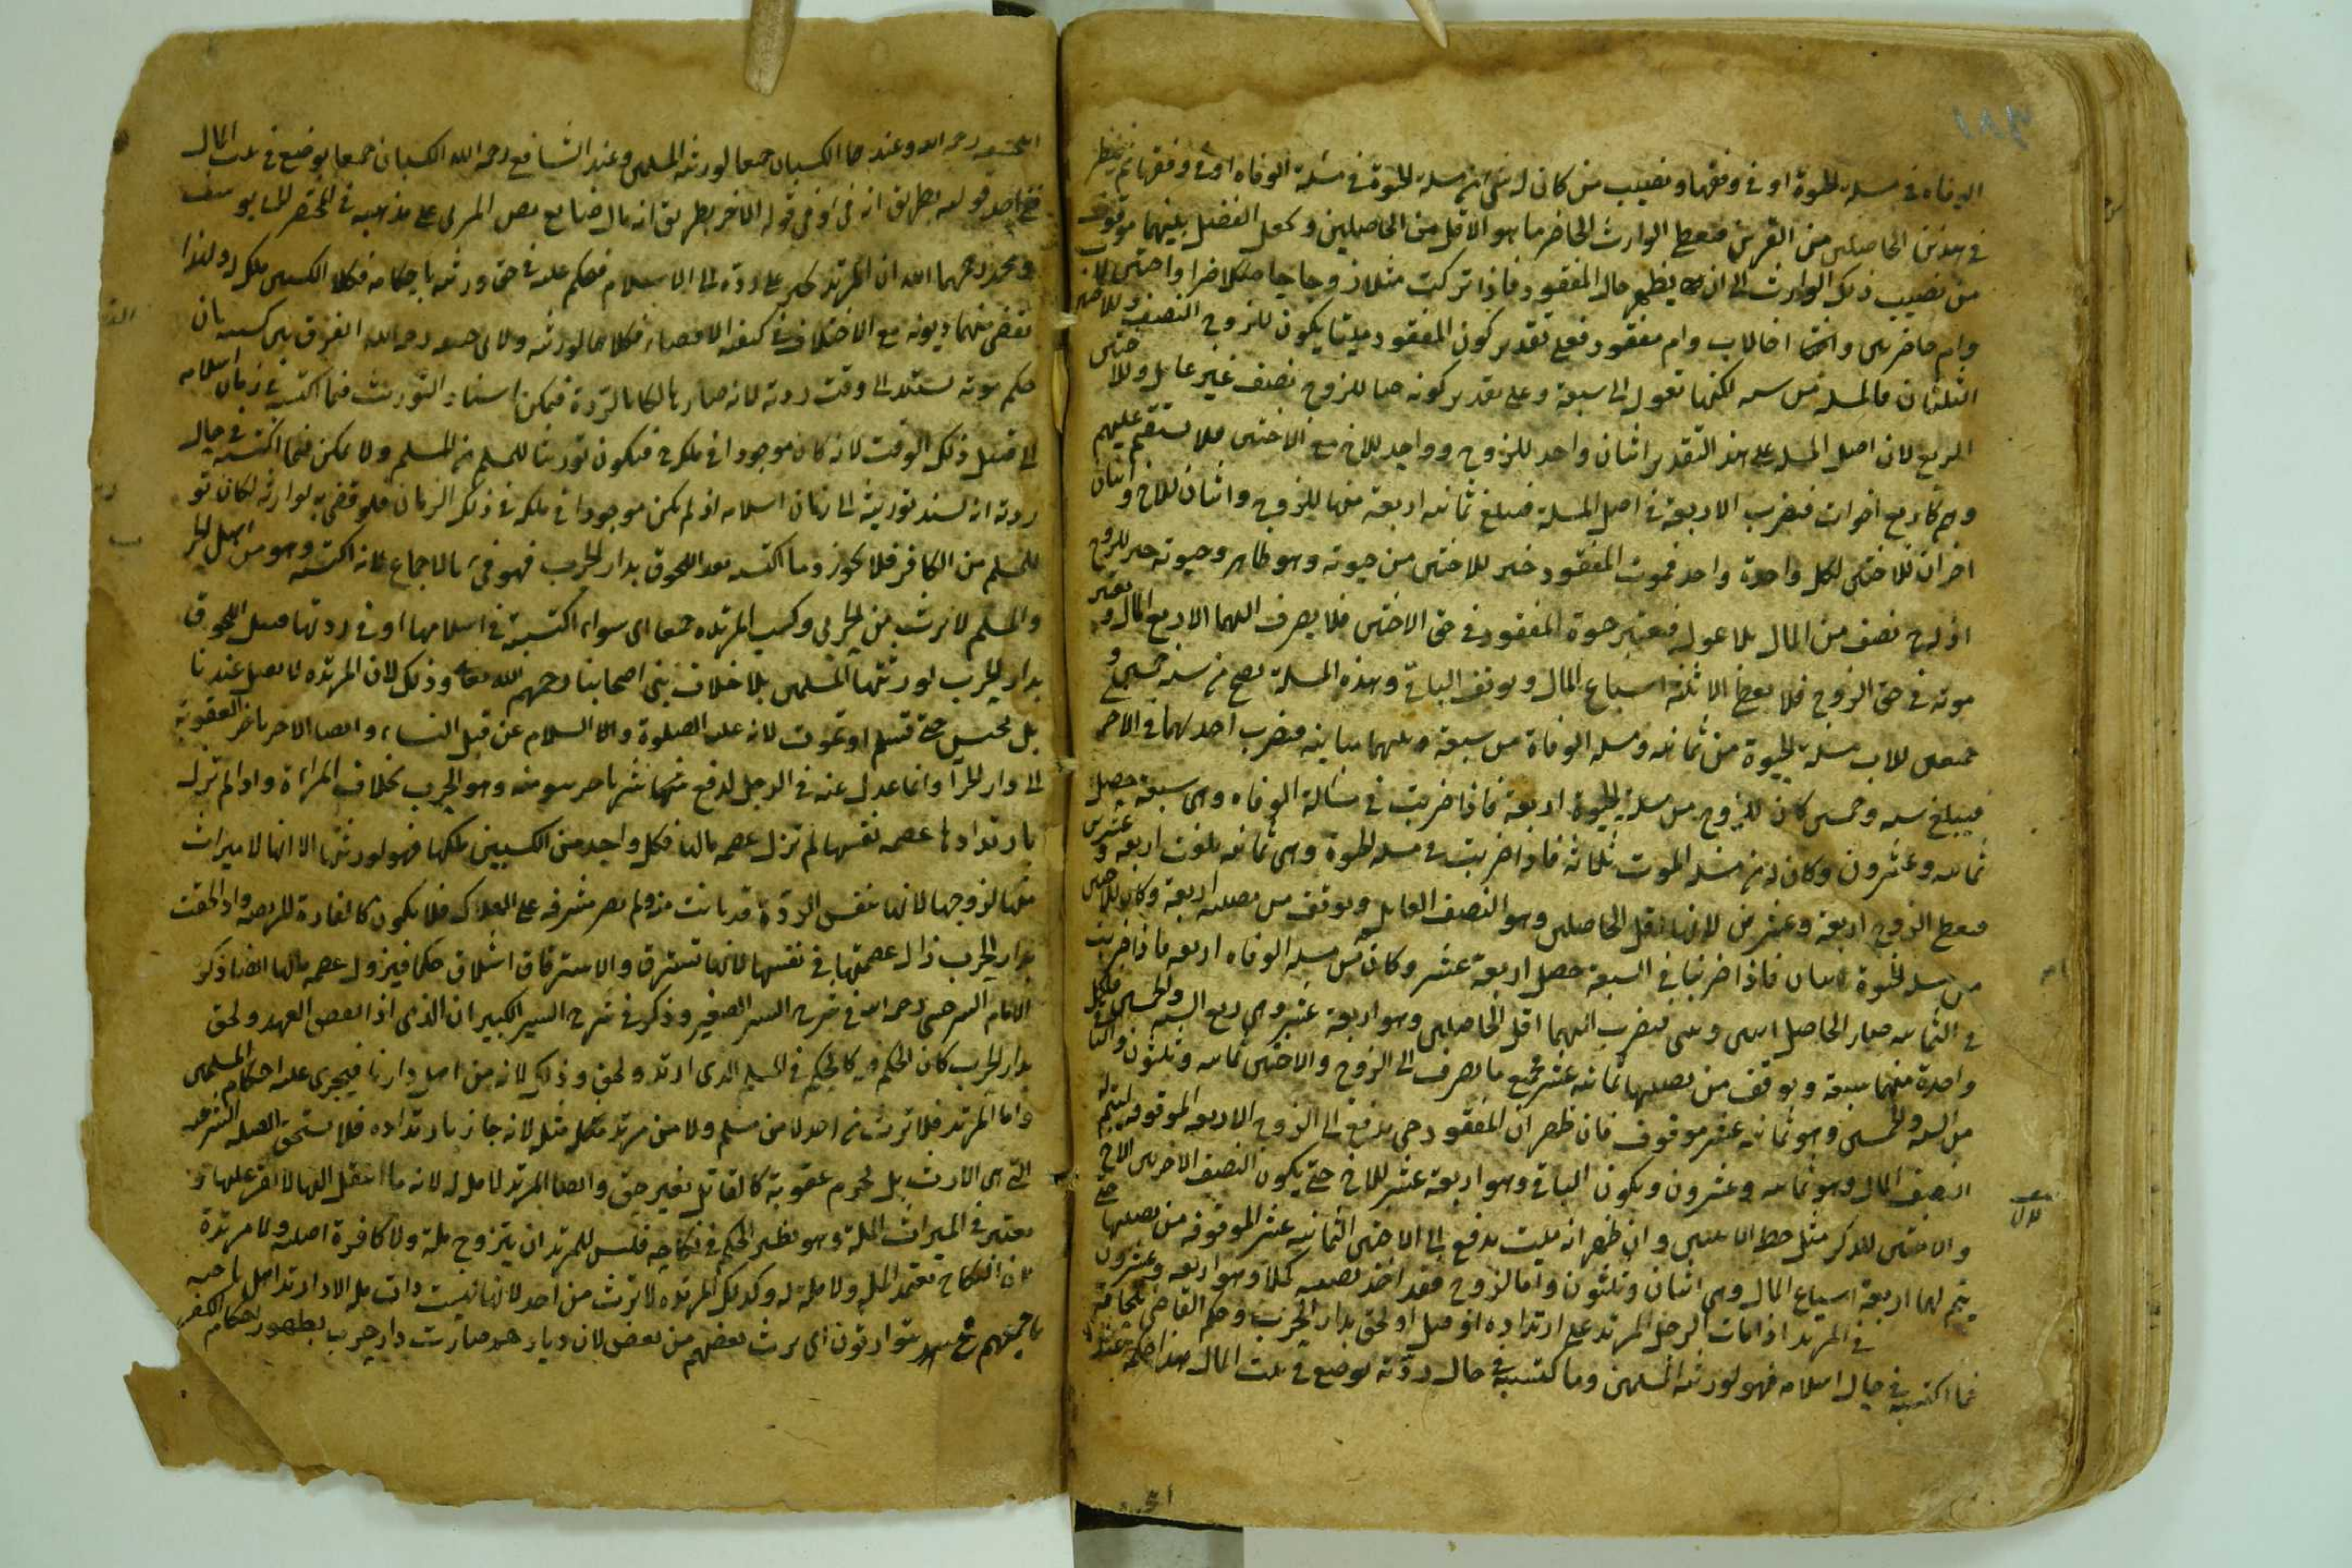 الوفاة في مسئلة الحيوة او في وفقها ونصيب من كان له شئ من مسئلة الحيوة في مسئلة الوفاة او في وفقها ثم ينظر
في هذين الحاصلين من الضرب فيعطى الوارث الحاضر ما هو الاقل من الحاصلين وبجعل الفضل بينهما موقوفا
من نصيب ذلك الوارث الى ان يظهر حال المفقود فاذا تركت مثلا زوجا حاضرا واختين لاب
وام حاضرتين واخا لاب وام مفقود فعلى تقدير كون المفقود ميتا يكون للزوج النصف وللاختين
الثلثان فالمسئلة من ستة لكنها تعول الى سبعة وعلى تقدير كونه حيا للزوج نصف غير عايل وللاختين
الربع لان اصل المسئلة على هذا التقدير اثنان واحد للزوج وواحد للاخ مع الاختين فلا يستقيم عليهم
وهم كاربع اخوات فيضرب الاربعة في اصل المسئلة فيبلغ ثمانية اربعة منها للزوج واثنان للاخ واثنان
اخران للاختين لكل واحدة واحد فموت المفقود خير للاختين من حيوته وهو ظاهر وحيوته خير للزوج
اذ له ح نصف من المال بلا عول فيعتبر حيوة المفقود في حق الاختين فلا يصرف اليهما الا ربع المال ويعتبر
موته في حق الزوج فلا يعطى الا ثلثة اسباع المال ويوقف الباقي وهذه المسئلة تصح من ستة وخمسين
مسئلة الحيوة من ثمانية ومسئلة الوفاة من سبعة وبينهما مباينة فيضرب احديهما في الاخرى
فيبلغ ستة وخمسين كان للزوج من مسئلة الحيوة اربعة فاذا ضربت في مسئلة الوفاة وهي سبعة حصل
ثمانية وعشرون وكان له من مسئلة الموت ثلثة فاذا ضربت في مسئلة الحيوة وهي ثمانية بلغت اربعة وعشرين
فيعطى الزوج اربعة وعشرين لانها اقل الحاصلين وهو النصف العايل ويوقف من نصيبه اربعة وكان للاختين
من مسئلة الحيوة اثنان فاذا ضربناها في السبعة حصل اربعة عشر وكان من مسئلة الوفاة اربعة فاذا ضربت
في الثمانية صار الحاصل اثنين وثلثين فيصرف اليهما اقل الحاصلين وهو اربعة عشر وهي ربع الستة والخمسين فلكل
واحدة منهما سبعة ويوقف من نصيبهما ثمانية عشر فجميع ما يصرف الى الزوج والاختين ثمانية وثلثون والباقي
من الستة والخمسين وهو ثمانية عشر موقوف فان ظهر ان المفقود حي يدفع الى الزوج الاربعة الموقوفة ليتم له
النصف المال وهو ثمانية وعشرون ويكون الباقي وهو اربعة عشر للاخ حتى يكون النصف الاخر بين الاخ
والاختين للذكر مثل حظ الانثيين وان ظهر انه ميت يدفع الى الاختين الثمانية عشر الموقوفة من نصيبهما حتى
يتم لهما اربعة اسباع المال وهي اثنان وثلثون واما الزوج فقد اخذ نصيبه كملا وهو اربعة وعشرون
في المرتد اذا مات الرجل المرتد على ارتداده او قتل او لحق بدار الحرب وحكم القاضي بلحاقه
فما اكتسبه في حال اسلامه فهو لورثته المسلمين وما اكتسبه في حال ردته يوضع في بيت المال هذا حكمه عند
ابي حنيفة رحمه الله وعندهما الكسبان جميعا لورثته المسلمين وعند الشافعي رحمه الله الكسبان جميعا يوضع في بيت المال
ففي احد قوليه بطريق انه فئ وفي قوله الاخر بطريق انه مال ضايع نص المزني على مذهبه في المختصر لابي يوسف
ومحمد رحمهما الله ان المرتد يجبر على رده الى الاسلام فيحكم عليه في حق ورثته باحكامه فكلا الكسبين ملك له ولهذا
تقضى منهما ديونه مع الاختلاف في كيفية الاقضاء فكلاهما لورثته ولابي حنيفة رحمه الله الفرق بين كسبيه بان
حكم موته يستند الى وقت ردته لانه صار هالكا بالردة فيمكن اسناد التوريث فيما اكتسبه في زمان اسلامه
الى قبيل ذلك الوقت لانه كان موجودا في ملكه فيكون توريثا للمسلم من المسلم ولا يمكن فيما اكتسبه في حال
ردته ان يسند توريثه الى زمان اسلامه اذ لم يكن موجودا في ملكه في ذلك الزمان فلو قضي به لوارثه لكان تو
للمسلم من الكافر فلا يجوز وما اكتسبه بعد اللحوق بدار الحرب فهو فئ بالاجماع لانه اكتسبه وهو من اهل الحر
والمسلم لا يرث من الحربي وكسب المرتدة جميعا اي سواء اكتسبته في اسلامها او في ردتها قبل اللحوق
بدار الحرب لورثتها المسلمين بلا خلاف بين اصحابنا رحمهم الله تعالى وذلك لان المرتدة لا تقتل عندنا
بل تحبس حتى تسلم او تموت لانه عليه الصلوة والسلام عن قتل النساء والاصل تاخير العقوبة
الى دار الجزاء وانما عدل عنه في الرجل لدفع شر ناجز متوقع منه وهو الحرب بخلاف المراة واذا لم تزل
بارتدادها عصمة نفسها لم تزل عصمة مالها فكل واحد من الكسبين ملكها فهو لورثتها الا انها لا ميراث
منها لزوجها لانها بنفس الردة قد بانت منه ولم تصر مشرفة على الهلاك فلا تكون كالفارة المريضة واذا لحقت
بدار الحرب زال عصمتها في نفسها لانها تسترق والاسترقاق اتلاف حكما فيزول عصمة مالها ايضا ذكره
الامام السرخسي رحمه الله في شرح السير الصغير وذكر في شرح السير الكبير ان الذمي اذا نقض العهد ولحق
بدار الحرب كان الحكم فيه كالحكم في المسلم الذي ارتد ولحق وذلك لانه من اهل دارنا فيجري عليه احكام المسلمين
واما المرتد فلا يرث من احد لا من مسلم ولا من مرتد مثله لانه جان بارتداده فلا يستحق الصلة الشرعية
التي هي الارث بل يحرم عقوبة كالقاتل بغير حق وايضا المرتد لا ملة له لانه ما انتقل اليها لا يقر عليها و
يعتبر في الميراث الملة وهو نظير الحكم في نكاحه فليس للمرتد ان يتزوج مسلمة ولا كافرة اصلية ولا مرتدة
لان النكاح يعتمد الملة ولا ملة له وكذلك المرتدة لا ترث من احد لانها ليست ذات ملة الا اذا ارتد اهل ناحية
باجمعهم فح يتوارثون اي يرث بعضهم من بعض لان ديارهم صارت دار حرب بظهور احكام الكفر